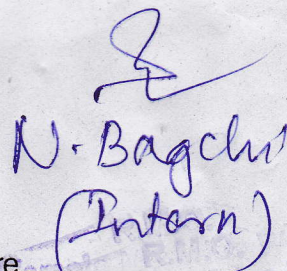 N. Bagchi
(Intern)
re